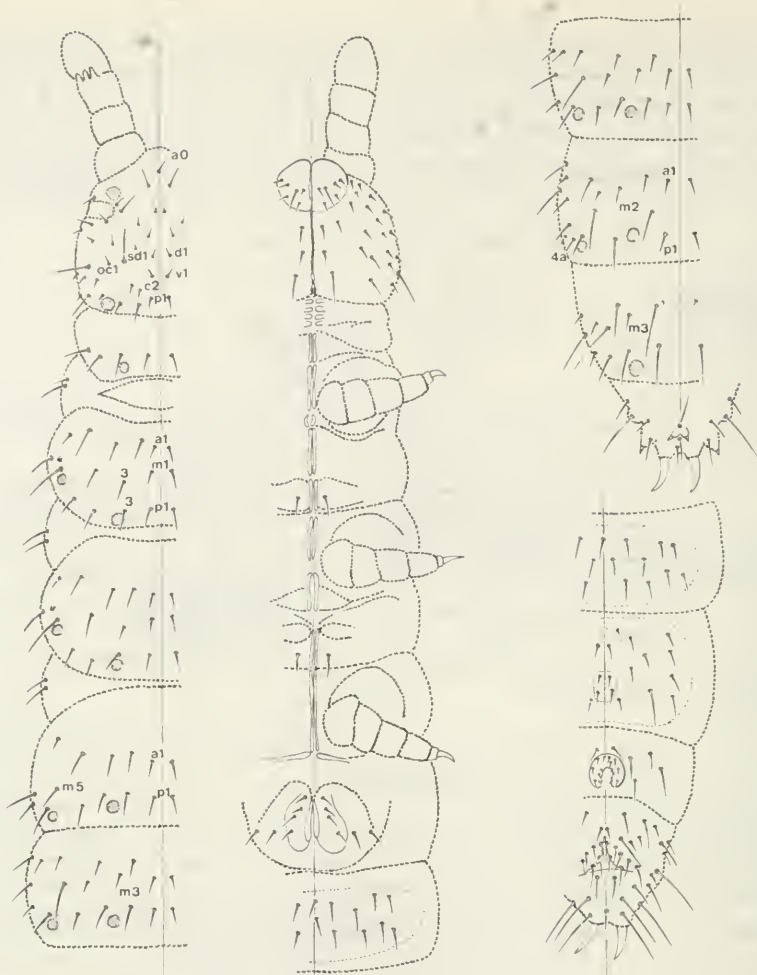 a0
sd1 d1
oc1 v1
c2
p1
a1
m1
3
3 p1
a1
m5
p1
m3
a1
m2
p1
4a
m3